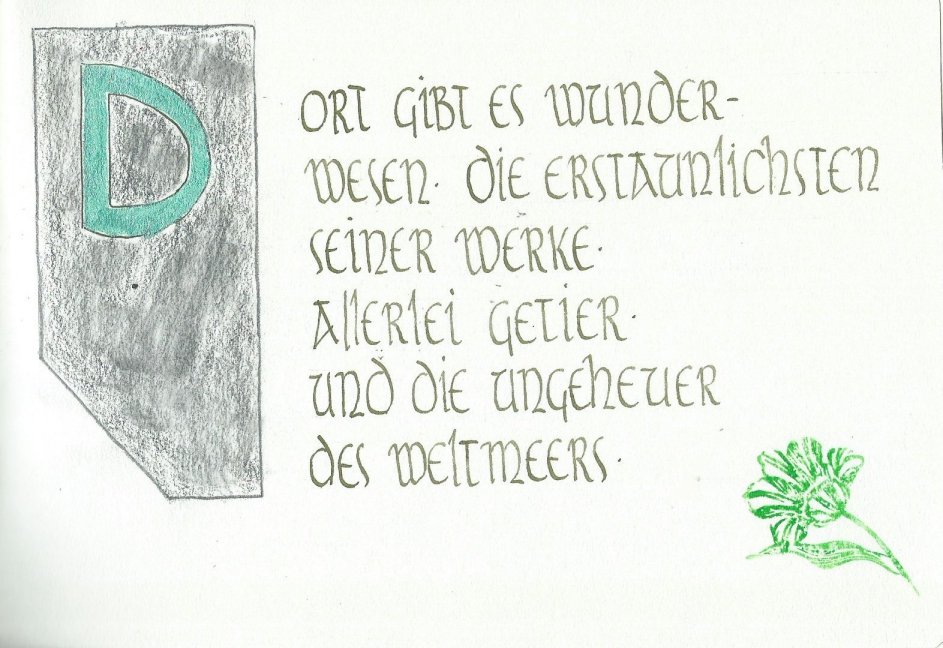 DORT GIBT ES WUNDER-
WESEN. DIE ERSTAUNLICHSTEN
SEINER WERKE.
ALLERLEI GETIER.
UND DIE UNGEHEUER
DES WELTMEERS.